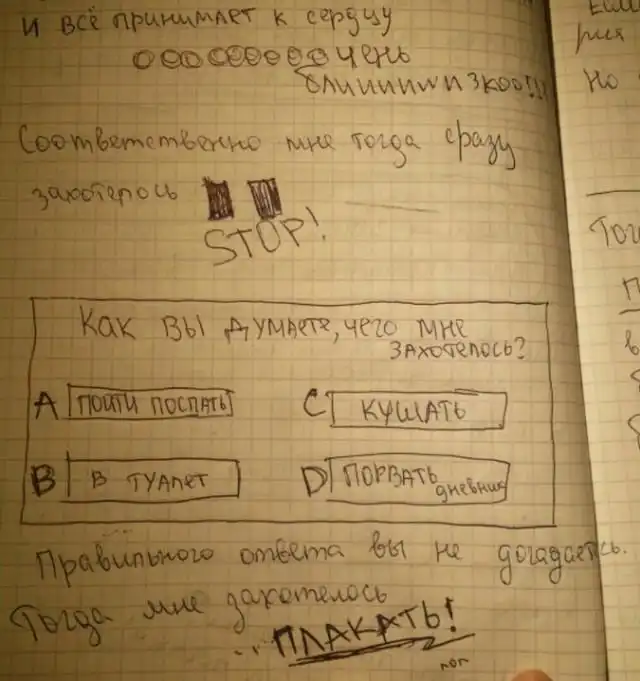 И всё принимает к сердцу
ООООООООочень
блиииииизкоо!!!
Соответственно мне тогда сразу
захотелось
STOP!
Как вы думаете, чего мне
захотелось?
A ПОЙТИ ПОСПАТЬ
C КУШАТЬ
B В ТУАЛЕТ
D ПОРВАТЬ
дневник
Правильного ответа вы не догадаетесь.
Тогда мне захотелось
...ПЛАКАТЬ!
лол
Но
Тог
в